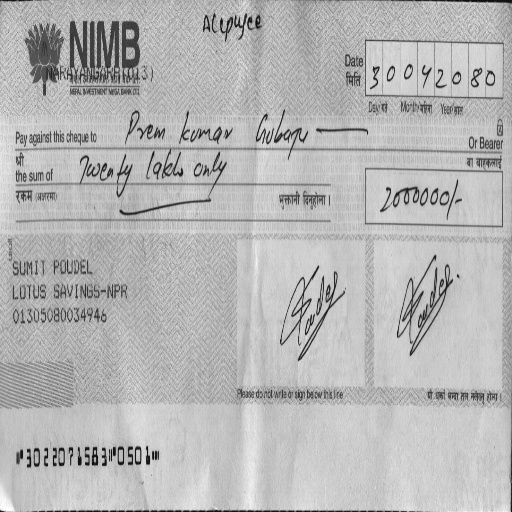 A/C payee
NIMB
NARAYANGARH(013)
NEPAL INVESTMENT MEGA BANK LTD.
Date
मिति
30042080
Day/गते Month/महिना Year/साल
Pay against this cheque to Prem kumar
Or Bearer
श्री
वा वाहकलाई
the sum of Twenty lakhs only
रकम (अक्षरमा)
भुक्तानी दिनुहोला ।
2000000/-
SUMIT POUDEL
LOTUS SAVINGS-NPR
01305080034946
Poudel
Poudel
Please do not write or sign below this line
⑈30220?1583⑈0501⑈